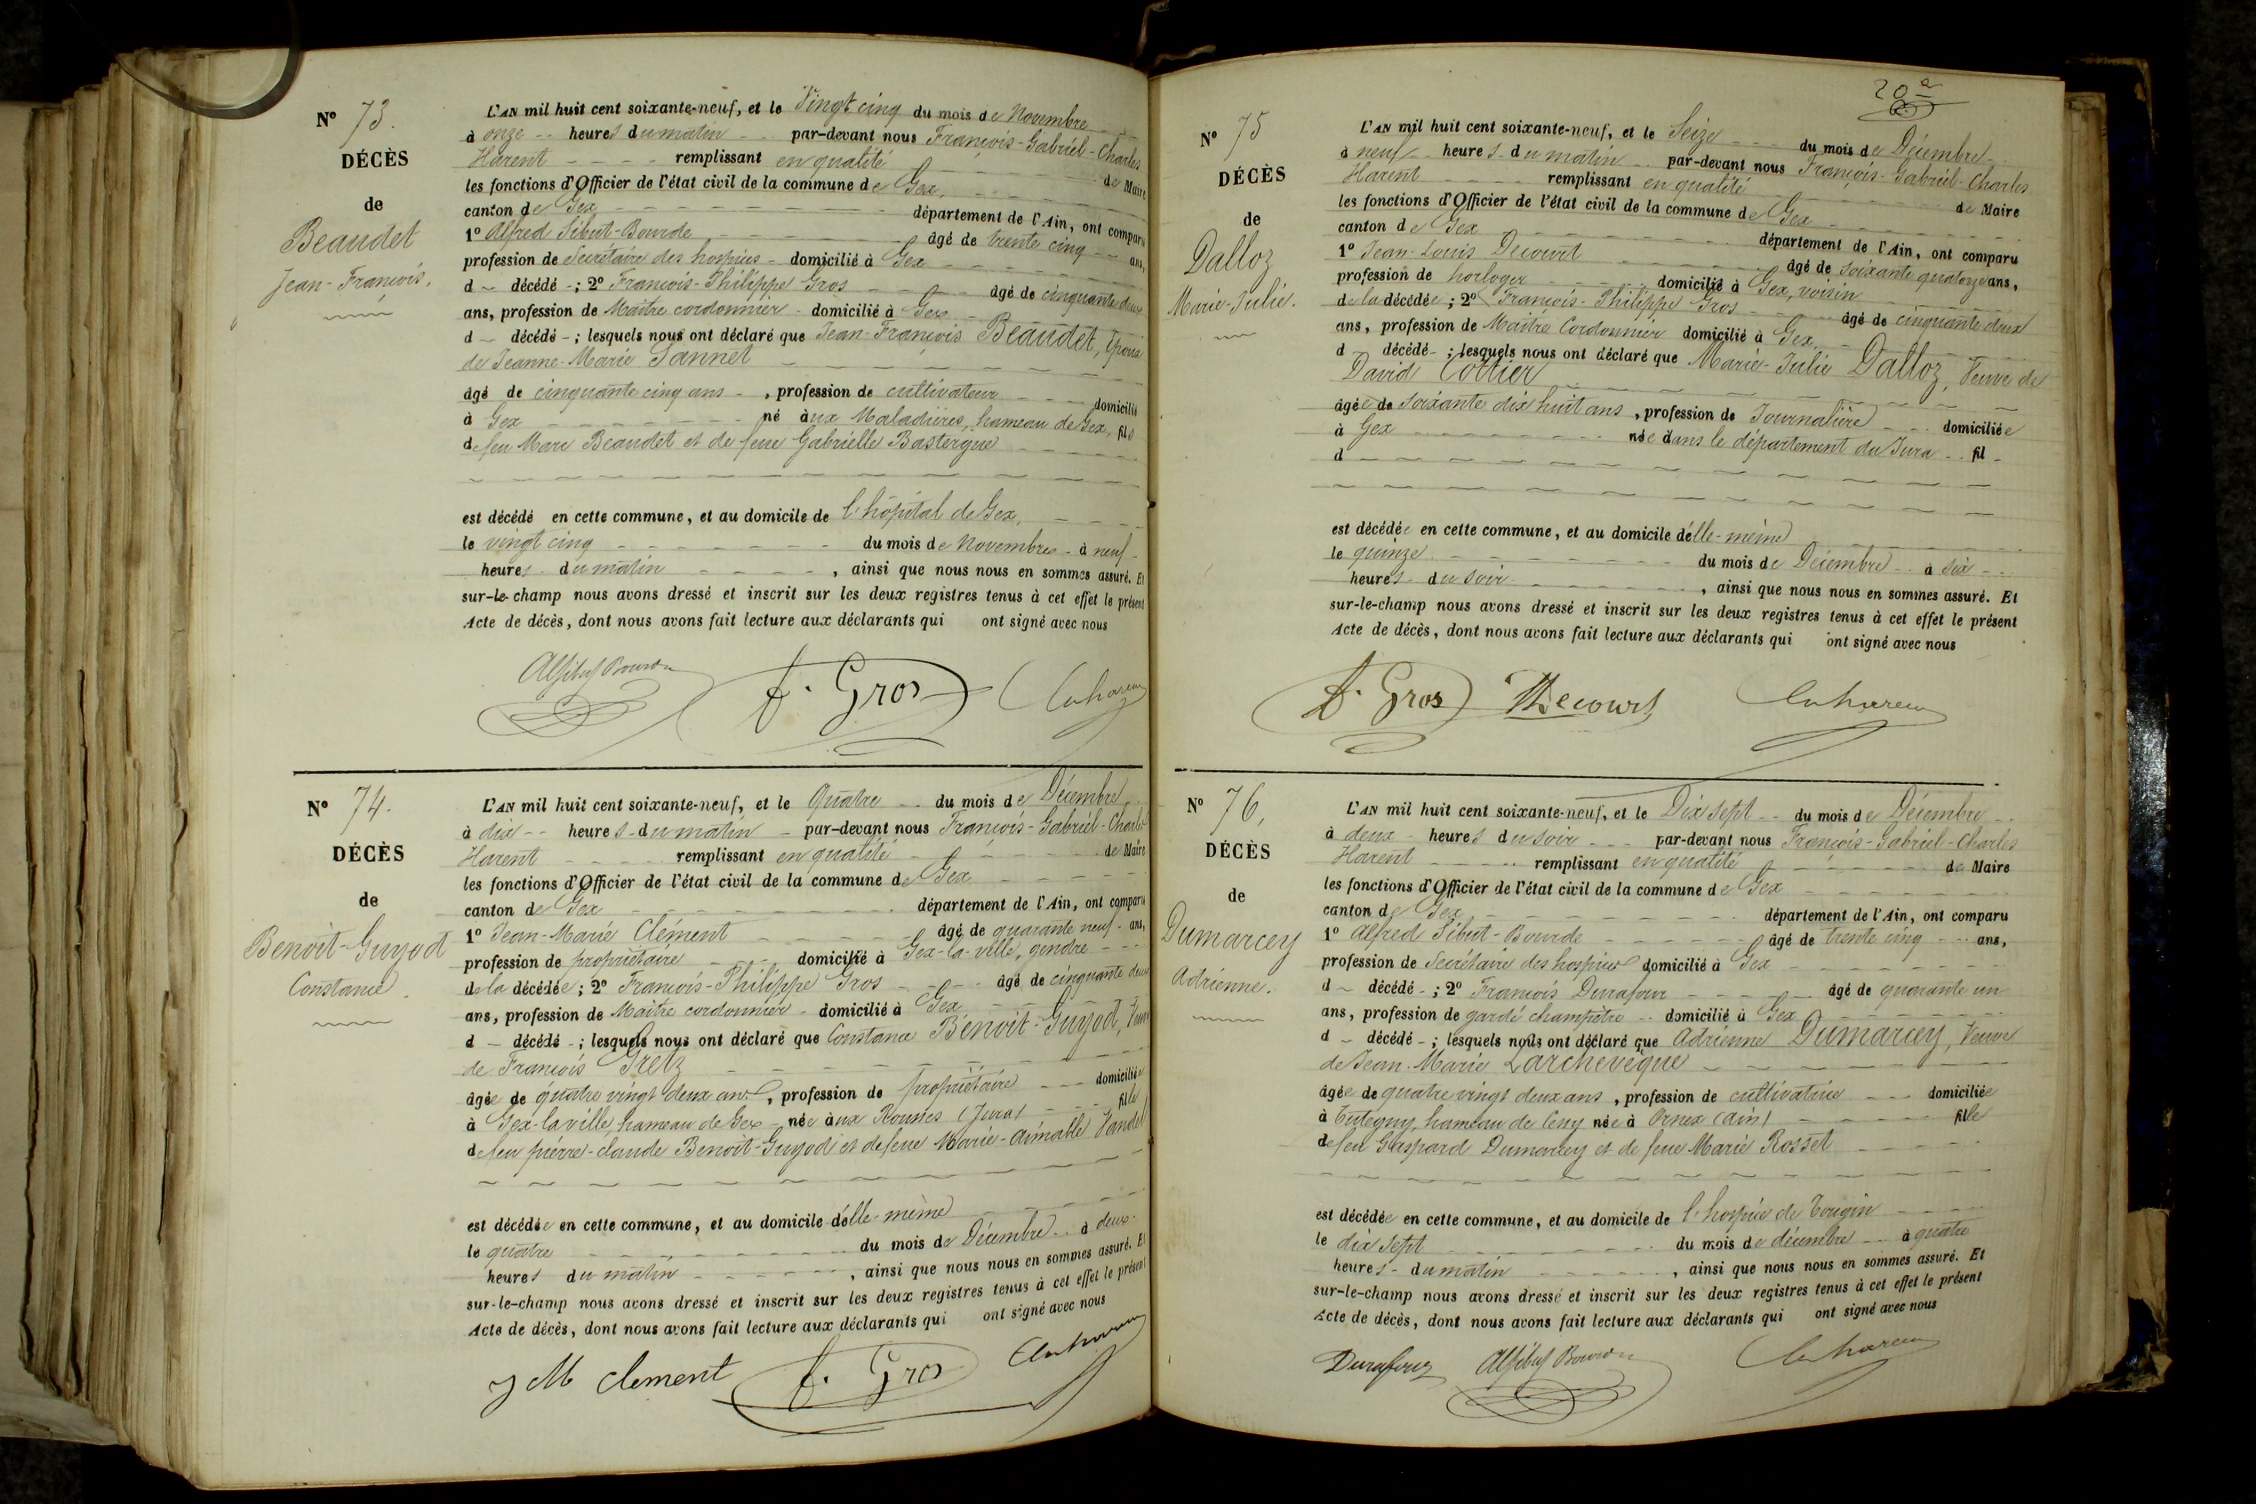 Nº 73.
DÉCÈS
de
Beaudet
Jean-François.
L'AN mil huit cent soixante-neuf, et le Vingt cinq du mois de Novembre
à onze heures du matin par-devant nous François-Gabriel-Charles
Harent remplissant en qualité de Maire
les fonctions d'Officier de l'état civil de la commune de Gex,
canton de Gex département de l'Ain, ont comparu
1º Alfred Sibut-Bourde âgé de trente cinq ans,
profession de Secrétaire des hospices domicilié à Gex
d décédé ; 2º François-Philippe Gros âgé de cinquante deux
ans, profession de Maître cordonnier domicilié à Gex
d décédé ; lesquels nous ont déclaré que Jean-François Beaudet, Epoux
de Jeanne-Marie Lannet
âgé de cinquante cinq ans, profession de cultivateur domicilié
à Gex né aux Maladières, hameau de Gex, fils
de feu Marc Beaudet et de feue Gabrielle
est décédé en cette commune, et au domicile de l'hôpital de Gex,
le vingt cinq du mois de Novembre à neuf
heures du matin, ainsi que nous nous en sommes assuré. Et
sur-le-champ nous avons dressé et inscrit sur les deux registres tenus à cet effet le présent
Acte de décès, dont nous avons fait lecture aux déclarants qui ont signé avec nous
f. Gros
Nº 74.
DÉCÈS
de
Benoit-Guyod
Constance.
L'AN mil huit cent soixante-neuf, et le Quatre du mois de Décembre
à dix heures du matin par-devant nous François-Gabriel-Charles
Harent remplissant en qualité de Maire
les fonctions d'Officier de l'état civil de la commune de Gex
canton de Gex département de l'Ain, ont comparu
1º Jean-Marie Clément âgé de quarante neuf ans,
profession de propriétaire domicilié à Gex-la-ville, gendre
de la décédée ; 2º François-Philippe Gros âgé de cinquante deux
ans, profession de Maître cordonnier domicilié à Gex
d décédé ; lesquels nous ont déclaré que Constance Benoit-Guyod, Veuve
de François Gretz
âgée de quatre vingt deux ans, profession de propriétaire domiciliée
à Gex-la ville, hameau de Gex née aux Rousses (Jura) fille
de feu pierre-claude Benoit-Guyod et de feue Marie-aimable Vandel
est décédée en cette commune, et au domicile d'elle-même
le quatre du mois de Décembre à deux
heures du matin, ainsi que nous nous en sommes assuré. Et
sur-le-champ nous avons dressé et inscrit sur les deux registres tenus à cet effet le présent
Acte de décès, dont nous avons fait lecture aux déclarants qui ont signé avec nous
J M Clement f. Gros
20e
Nº 75
DÉCÈS
de
Dalloz
Marie-Julie.
L'AN mil huit cent soixante-neuf, et le Seize du mois de Décembre
à neuf heures du matin par-devant nous François-Gabriel-Charles
Harent remplissant en qualité de Maire
les fonctions d'Officier de l'état civil de la commune de Gex
canton de Gex département de l'Ain, ont comparu
1º Jean-Louis Decourt âgé de soixante quatorze ans,
profession de horloger domicilié à Gex, voisin
de la décédée ; 2º François-Philippe Gros âgé de cinquante deux
ans, profession de Maître Cordonnier domicilié à Gex,
d décédé ; lesquels nous ont déclaré que Marie-Julie Dalloz, Veuve de
David Cottier
âgée de soixante dix huit ans, profession de Journalière domiciliée
à Gex née dans le département du Jura fil
d
est décédée en cette commune, et au domicile d'elle-même
le quinze du mois de Décembre à six
heures du soir, ainsi que nous nous en sommes assuré. Et
sur-le-champ nous avons dressé et inscrit sur les deux registres tenus à cet effet le présent
Acte de décès, dont nous avons fait lecture aux déclarants qui ont signé avec nous
f. Gros Decourt
Nº 76,
DÉCÈS
de
Dumarcey
Adrienne.
L'AN mil huit cent soixante-neuf, et le Dix sept du mois de Décembre
à deux heures du soir par-devant nous François-Gabriel-Charles
Harent remplissant en qualité de Maire
les fonctions d'Officier de l'état civil de la commune de Gex
canton de Gex département de l'Ain, ont comparu
1º Alfred Sibut-Bourde âgé de trente cinq ans,
profession de Secrétaire des hospices domicilié à Gex
d décédé ; 2º François Durafour âgé de quarante un
ans, profession de garde champêtre domicilié à Gex
d décédé ; lesquels nous ont déclaré que Adrienne Dumarcey, Veuve
de Jean-Marie Larchevêque
âgée de quatre vingt deux ans, profession de cultivatrice domiciliée
à Tutegny, hameau de Cessy née à Ornex (Ain) fille
de feu Gaspard Dumarcey et de feue Marie Rosset
est décédée en cette commune, et au domicile de l'hospice de Tougin
le dix sept du mois de décembre à quatre
heures du matin, ainsi que nous nous en sommes assuré. Et
sur-le-champ nous avons dressé et inscrit sur les deux registres tenus à cet effet le présent
Acte de décès, dont nous avons fait lecture aux déclarants qui ont signé avec nous
Durafour